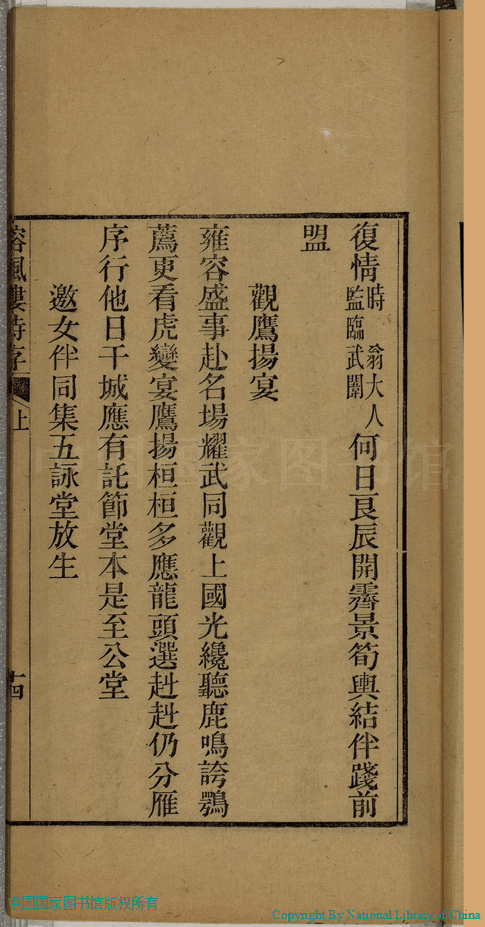 復情時翁大人監臨武闈何日良辰開霽景筍輿結伴踐前
盟
觀鷹揚宴
雍容盛事赴名場耀武同觀上國光纔聽鹿鳴誇鶚
薦更看虎變宴鷹揚桓桓多應龍頭選赳赳仍分雁
序行他日干城應有託節堂本是至公堂
邀女伴同集五詠堂放生
樓詩存
上
十四
中国国家图书馆
中国国家图书馆版权所有
Copyright By National Library of China